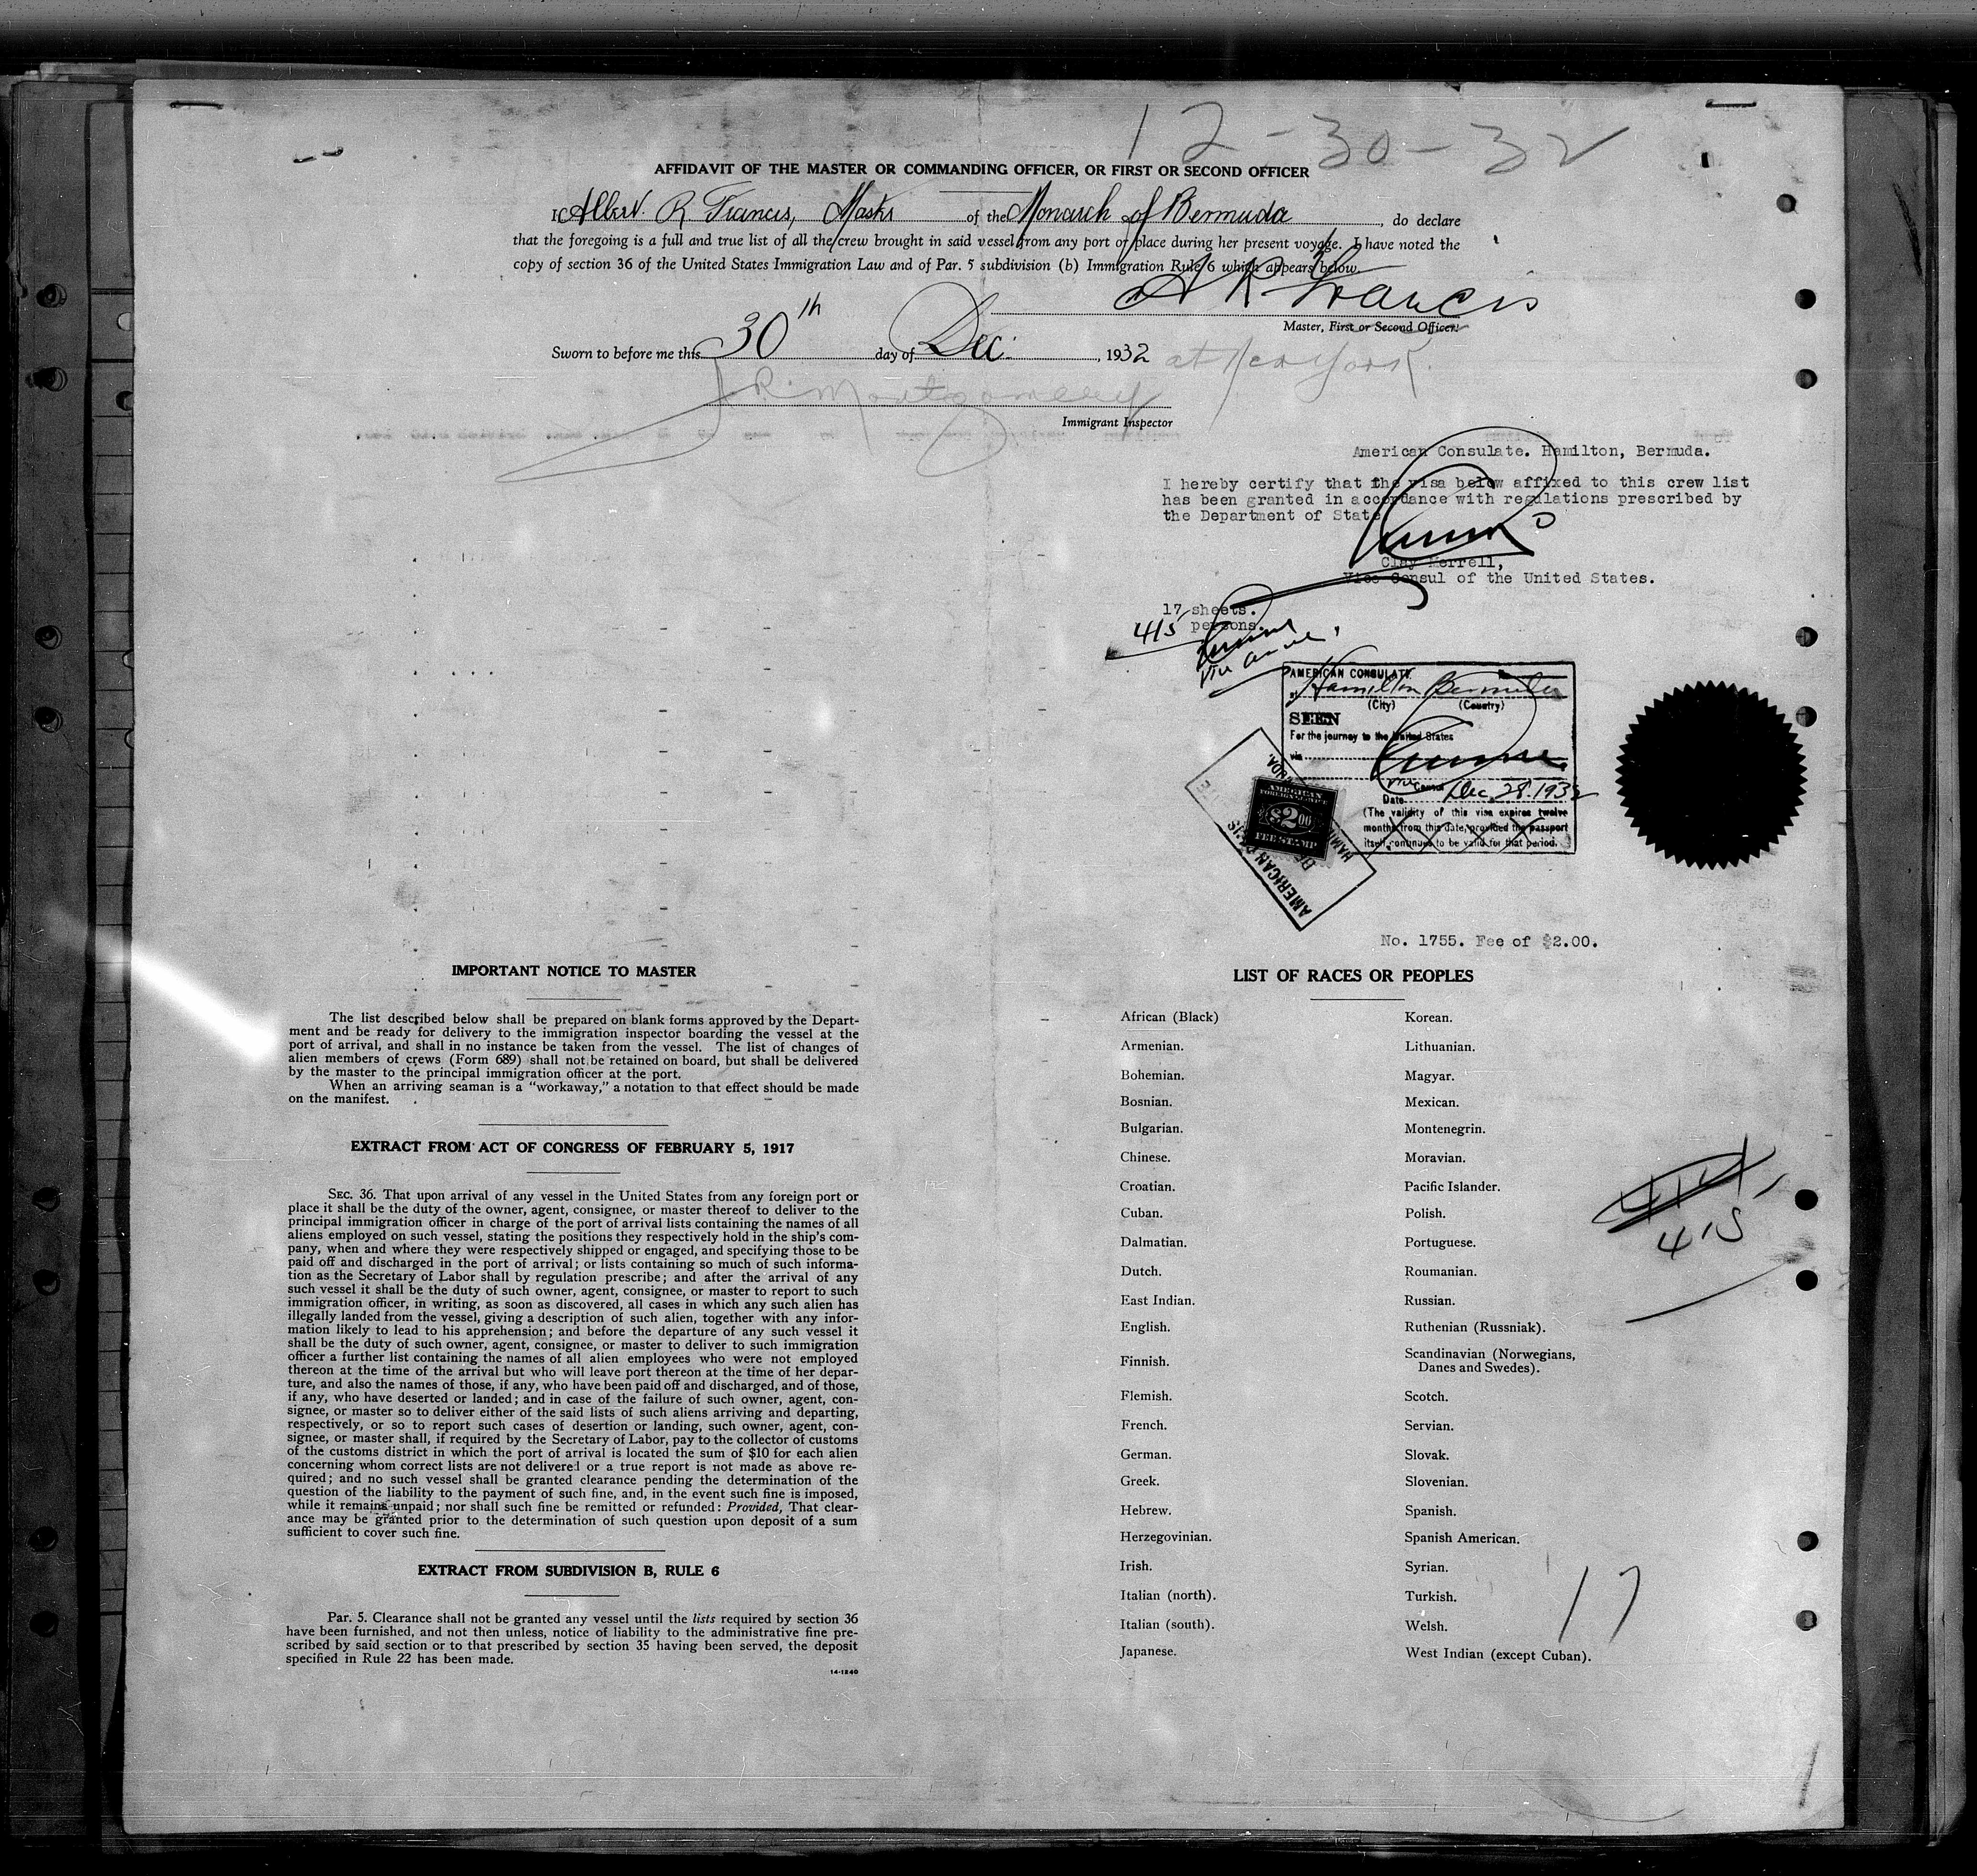 12-30-32
AFFIDAVIT OF THE MASTER OR COMMANDING OFFICER, OR FIRST OR SECOND OFFICER
I, Albert R. Francis, Master of the Monarch of Bermuda, do declare
that the foregoing is a full and true list of all the crew brought in said vessel from any port or place during her present voyage. I have noted the
copy of section 36 of the United States Immigration Law and of Par. 5 subdivision (b) Immigration Rule 6 which appears below.
A R Francis
Master, First or Second Officer.
Sworn to before me this 30th day of Dec. , 1932 at New York.
J R Montgomery
Immigrant Inspector
American Consulate. Hamilton, Bermuda.
I hereby certify that the visa below affixed to this crew list
has been granted in accordance with regulations prescribed by
the Department of State
Clay Merrell,
Vice Consul of the United States.
17 sheets.
415 persons.
AMERICAN CONSULATE
at Hamilton Bermuda
(City) (Country)
SEEN
For the journey to the United States
via
Consul
Date Dec. 28. 1932
(The validity of this visa expires twelve
months from this date, provided the passport
itself continues to be valid for that period.
AMERICAN
FOREIGN SERVICE
$2.00
FEE STAMP
AMERICAN
No. 1755. Fee of $2.00.
IMPORTANT NOTICE TO MASTER
The list described below shall be prepared on blank forms approved by the Depart-
ment and be ready for delivery to the immigration inspector boarding the vessel at the
port of arrival, and shall in no instance be taken from the vessel. The list of changes of
alien members of crews (Form 689) shall not be retained on board, but shall be delivered
by the master to the principal immigration officer at the port.
When an arriving seaman is a "workaway," a notation to that effect should be made
on the manifest.
EXTRACT FROM ACT OF CONGRESS OF FEBRUARY 5, 1917
SEC. 36. That upon arrival of any vessel in the United States from any foreign port or
place it shall be the duty of the owner, agent, consignee, or master thereof to deliver to the
principal immigration officer in charge of the port of arrival lists containing the names of all
aliens employed on such vessel, stating the positions they respectively hold in the ship's com-
pany, when and where they were respectively shipped or engaged, and specifying those to be
paid off and discharged in the port of arrival; or lists containing so much of such informa-
tion as the Secretary of Labor shall by regulation prescribe; and after the arrival of any
such vessel it shall be the duty of such owner, agent, consignee, or master to report to such
immigration officer, in writing, as soon as discovered, all cases in which any such alien has
illegally landed from the vessel, giving a description of such alien, together with any infor-
mation likely to lead to his apprehension; and before the departure of any such vessel it
shall be the duty of such owner, agent, consignee, or master to deliver to such immigration
officer a further list containing the names of all alien employees who were not employed
thereon at the time of the arrival but who will leave port thereon at the time of her depar-
ture, and also the names of those, if any, who have been paid off and discharged, and of those,
if any, who have deserted or landed; and in case of the failure of such owner, agent, con-
signee, or master so to deliver either of the said lists of such aliens arriving and departing,
respectively, or so to report such cases of desertion or landing, such owner, agent, con-
signee, or master shall, if required by the Secretary of Labor, pay to the collector of customs
of the customs district in which the port of arrival is located the sum of $10 for each alien
concerning whom correct lists are not delivered or a true report is not made as above re-
quired; and no such vessel shall be granted clearance pending the determination of the
question of the liability to the payment of such fine, and, in the event such fine is imposed,
while it remains unpaid; nor shall such fine be remitted or refunded: Provided, That clear-
ance may be granted prior to the determination of such question upon deposit of a sum
sufficient to cover such fine.
EXTRACT FROM SUBDIVISION B, RULE 6
Par. 5. Clearance shall not be granted any vessel until the lists required by section 36
have been furnished, and not then unless, notice of liability to the administrative fine pre-
scribed by said section or to that prescribed by section 35 having been served, the deposit
specified in Rule 22 has been made.
14-1240
LIST OF RACES OR PEOPLES
African (Black)
Armenian.
Bohemian.
Bosnian.
Bulgarian.
Chinese.
Croatian.
Cuban.
Dalmatian.
Dutch.
East Indian.
English.
Finnish.
Flemish.
French.
German.
Greek.
Hebrew.
Herzegovinian.
Irish.
Italian (north).
Italian (south).
Japanese.
Korean.
Lithuanian.
Magyar.
Mexican.
Montenegrin.
Moravian.
Pacific Islander.
Polish.
Portuguese.
Roumanian.
Russian.
Ruthenian (Russniak).
Scandinavian (Norwegians,
Danes and Swedes).
Scotch.
Servian.
Slovak.
Slovenian.
Spanish.
Spanish American.
Syrian.
Turkish.
Welsh.
West Indian (except Cuban).
415
17